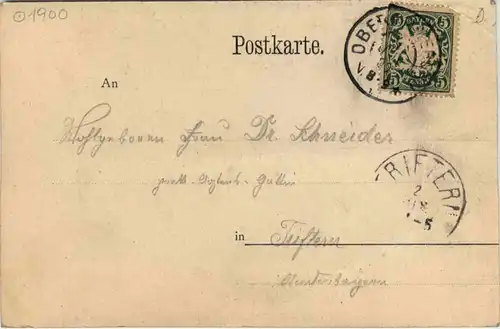 1900
D
Postkarte.
OBE
V. 8
BAYERN
5 5
5 5
An
Wohlgeboren Frau Dr. Schneider
prakt. Gattin
TRIFTERN
2
in Triftern
Niederbayern